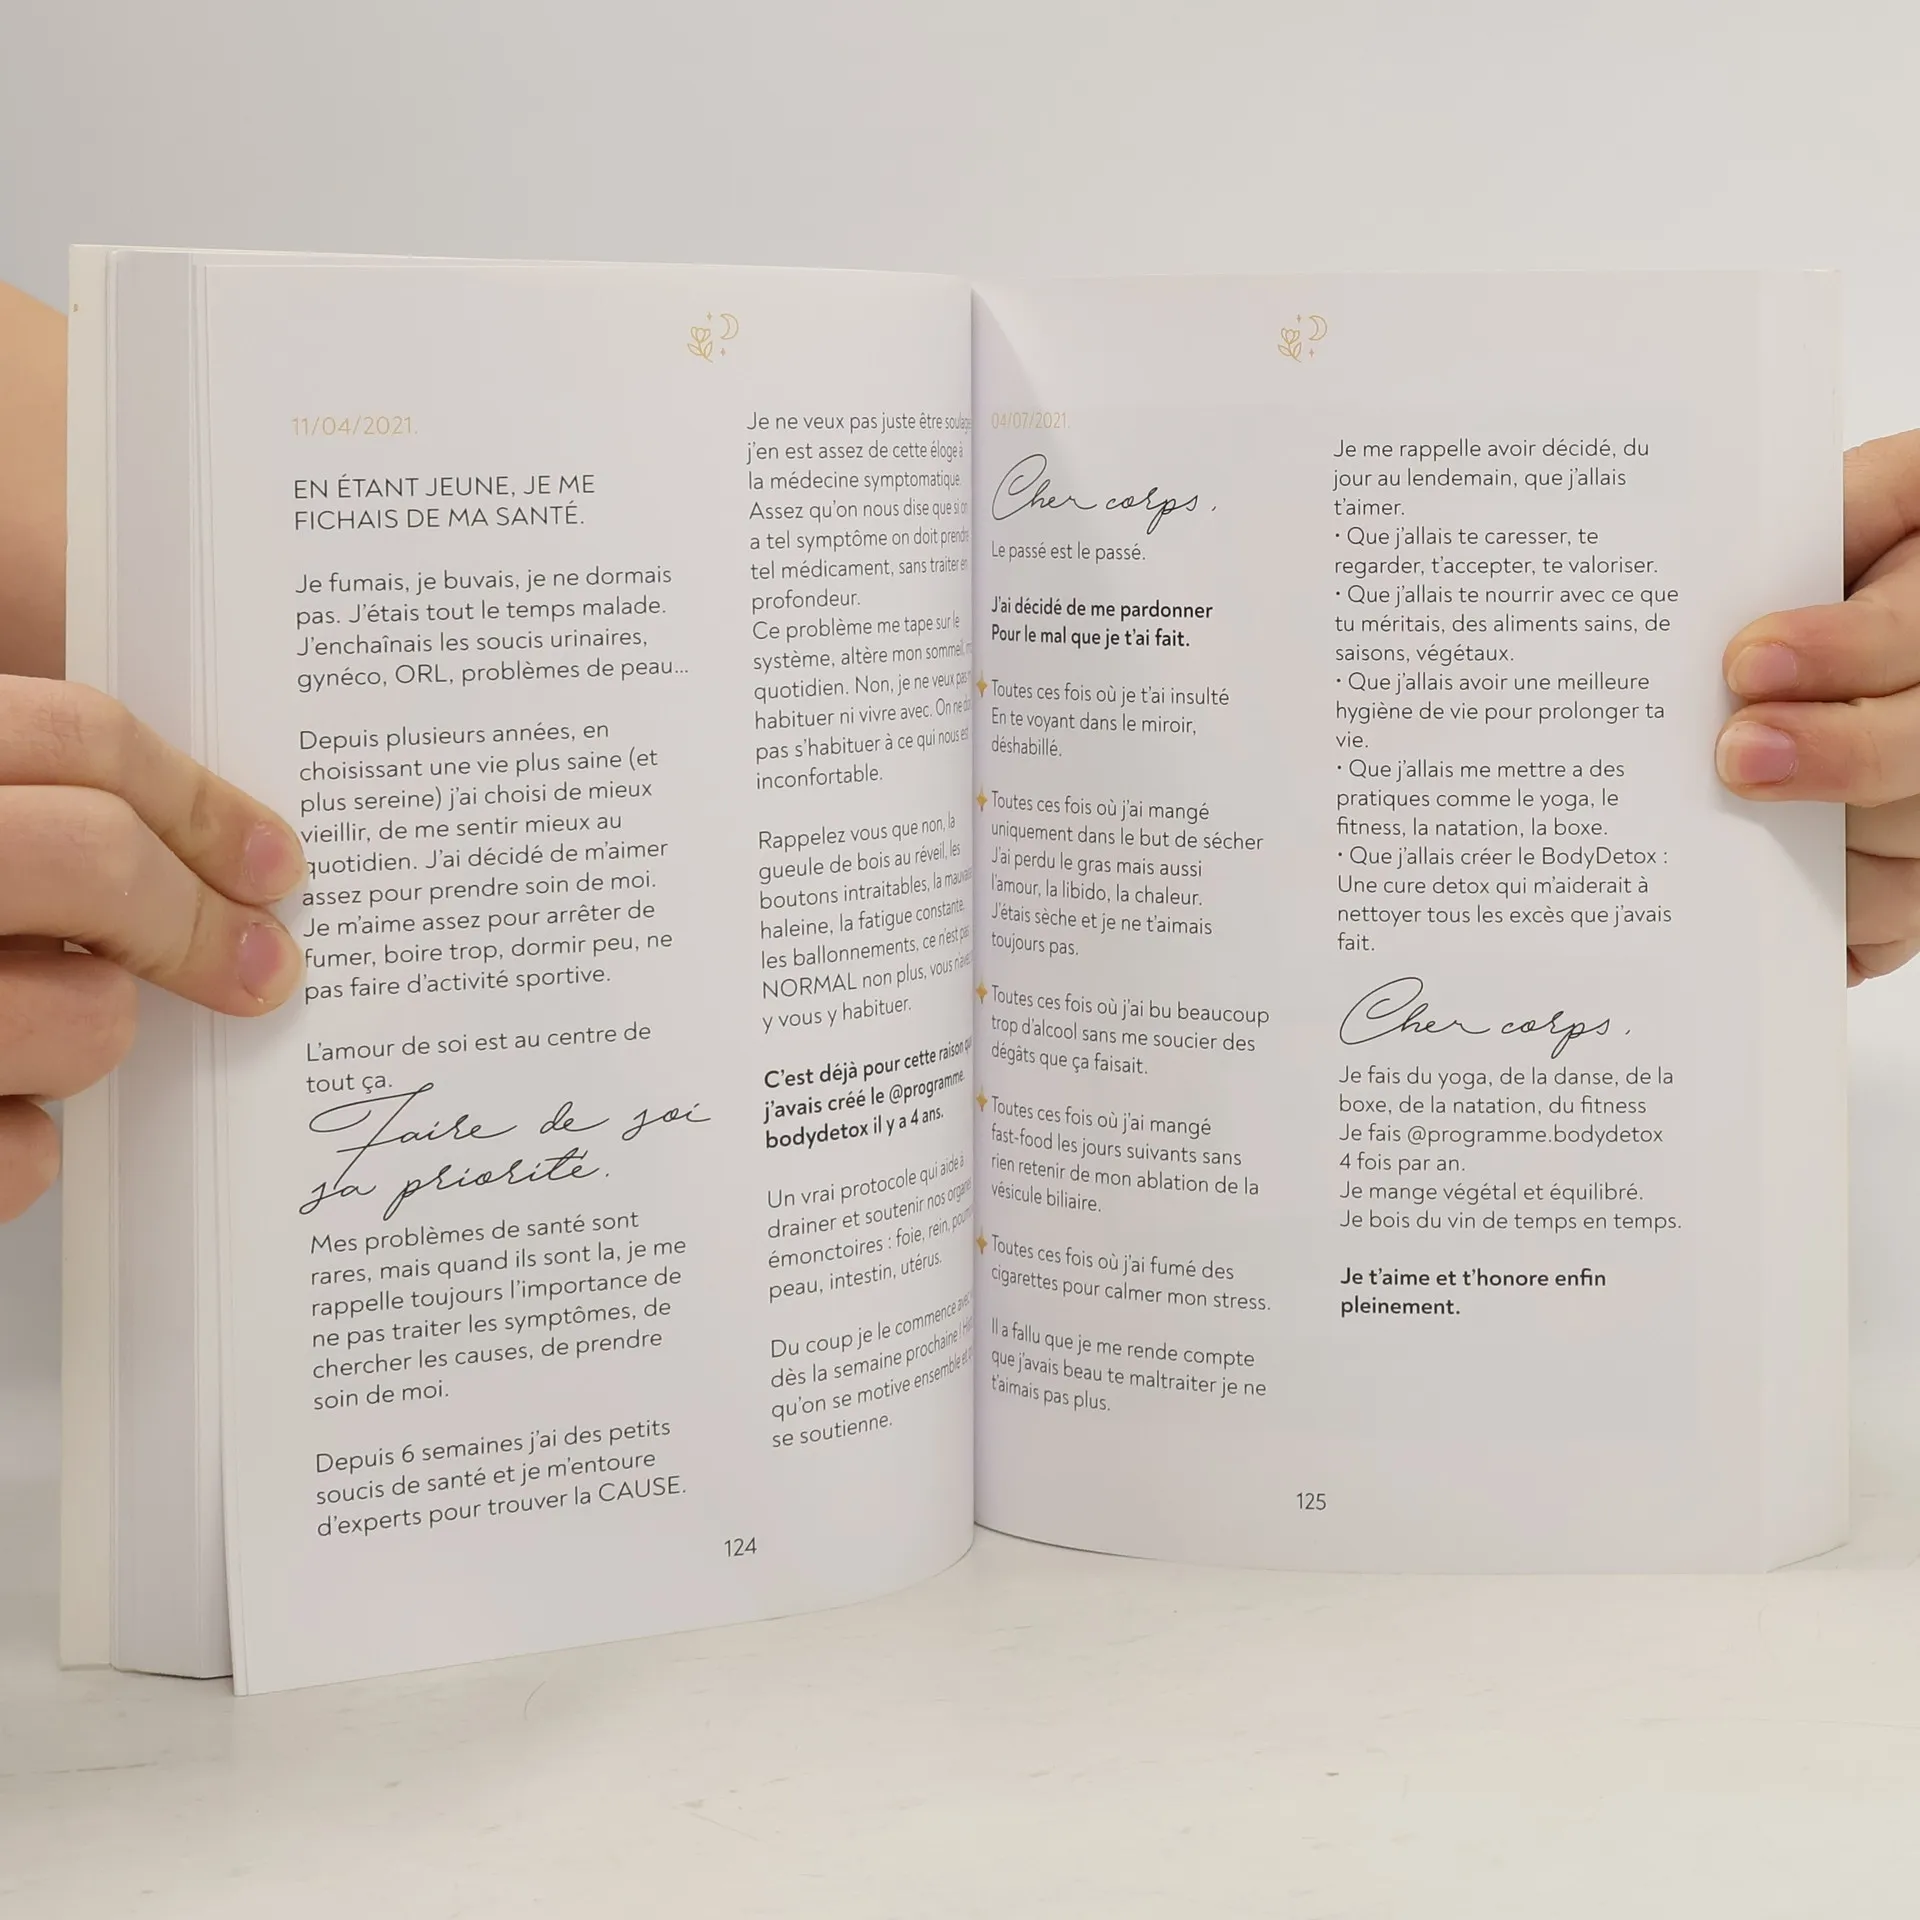 11/04/2021.
EN ÉTANT JEUNE, JE ME
FICHAIS DE MA SANTÉ.
Je fumais, je buvais, je ne dormais
pas. J'étais tout le temps malade.
J'enchaînais les soucis urinaires,
gynéco, ORL, problèmes de peau...
Depuis plusieurs années, en
choisissant une vie plus saine (et
plus sereine) j'ai choisi de mieux
vieillir, de me sentir mieux au
quotidien. J'ai décidé de m'aimer
assez pour prendre soin de moi.
Je m'aime assez pour arrêter de
fumer, boire trop, dormir peu, ne
pas faire d'activité sportive.
L'amour de soi est au centre de
tout ça.
Faire de soi
sa priorité.
Mes problèmes de santé sont
rares, mais quand ils sont la, je me
rappelle toujours l'importance de
ne pas traiter les symptômes, de
chercher les causes, de prendre
soin de moi.
Depuis 6 semaines j'ai des petits
soucis de santé et je m'entoure
d'experts pour trouver la CAUSE.
Je ne veux pas juste être
j'en est assez de cette éloge à
la médecine symptomatique.
Assez qu'on nous dise que si on
a tel symptôme on doit prendre
tel médicament, sans traiter en
profondeur.
Ce problème me tape sur le
système, altère mon sommeil,
quotidien. Non, je ne veux pas
habituer ni vivre avec. On ne
pas s'habituer à ce qui nous est
inconfortable.
Rappelez vous que non, la
gueule de bois au réveil, les
boutons intraitables, la
haleine, la fatigue constante,
les ballonnements, ce n'est pas
NORMAL non plus, vous
y vous y habituer.
C'est déjà pour cette raison
j'avais créé le @programme.
bodydetox il y a 4 ans.
Un vrai protocole qui aide à
drainer et soutenir nos organes
émonctoires : foie, rein,
peau, intestin, utérus.
Du coup je le commence
dès la semaine prochaine !
qu'on se motive ensemble et
se soutienne.
124
04/07/2021.
Cher corps,
Le passé est le passé.
J'ai décidé de me pardonner
Pour le mal que je t'ai fait.
Toutes ces fois où je t'ai insulté
En te voyant dans le miroir,
déshabillé.
Toutes ces fois où j'ai mangé
uniquement dans le but de sécher
J'ai perdu le gras mais aussi
l'amour, la libido, la chaleur.
J'étais sèche et je ne t'aimais
toujours pas.
Toutes ces fois où j'ai bu beaucoup
trop d'alcool sans me soucier des
dégâts que ça faisait.
Toutes ces fois où j'ai mangé
fast-food les jours suivants sans
rien retenir de mon ablation de la
vésicule biliaire.
Toutes ces fois où j'ai fumé des
cigarettes pour calmer mon stress.
Il a fallu que je me rende compte
que j'avais beau te maltraiter je ne
t'aimais pas plus.
Je me rappelle avoir décidé, du
jour au lendemain, que j'allais
t'aimer.
• Que j'allais te caresser, te
regarder, t'accepter, te valoriser.
• Que j'allais te nourrir avec ce que
tu méritais, des aliments sains, de
saisons, végétaux.
• Que j'allais avoir une meilleure
hygiène de vie pour prolonger ta
vie.
• Que j'allais me mettre a des
pratiques comme le yoga, le
fitness, la natation, la boxe.
• Que j'allais créer le BodyDetox :
Une cure detox qui m'aiderait à
nettoyer tous les excès que j'avais
fait.
Cher corps,
Je fais du yoga, de la danse, de la
boxe, de la natation, du fitness
Je fais @programme.bodydetox
4 fois par an.
Je mange végétal et équilibré.
Je bois du vin de temps en temps.
Je t'aime et t'honore enfin
pleinement.
125